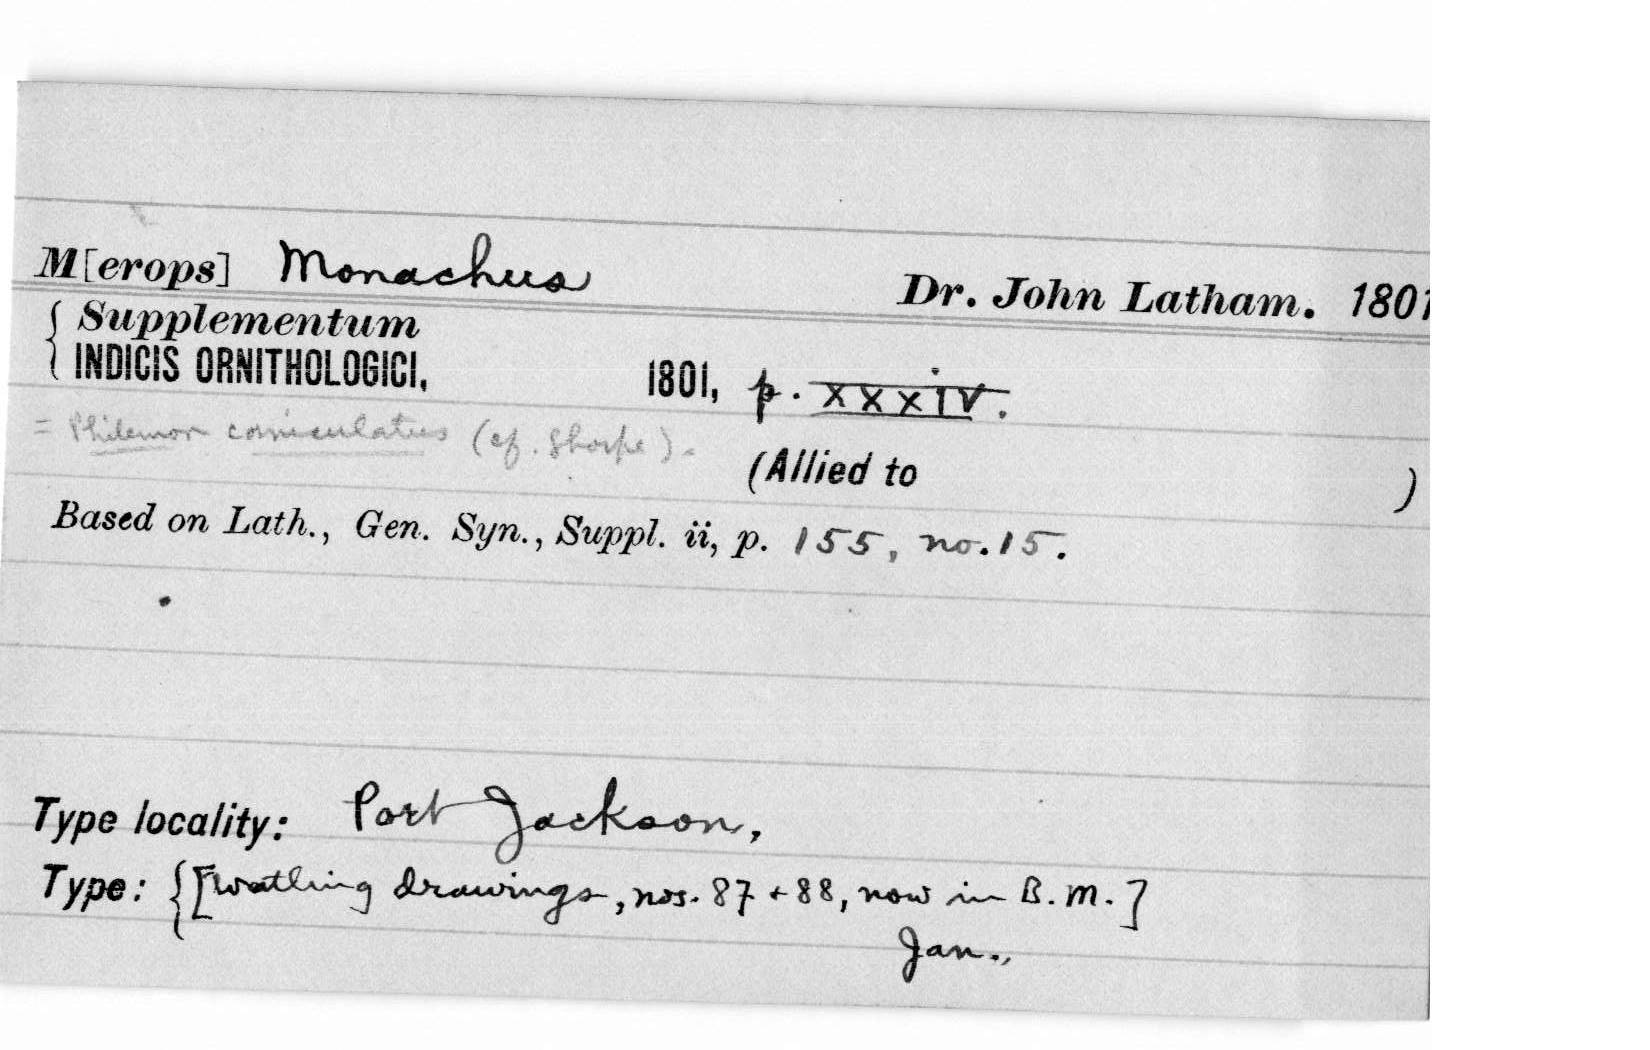 M[erops] Monachus Dr. John Latham. 1801
Supplementum
INDICIS ORNITHOLOGICI, 1801, p. xxxiv.
= Philemon corniculatus (cf. Sharpe).
(Allied to )
Based on Lath., Gen. Syn., Suppl. ii, p. 155, no. 15.
Type locality: Port Jackson,
Type: {[Watling drawings, nos. 87 + 88, now in B.M.]
Jan.,